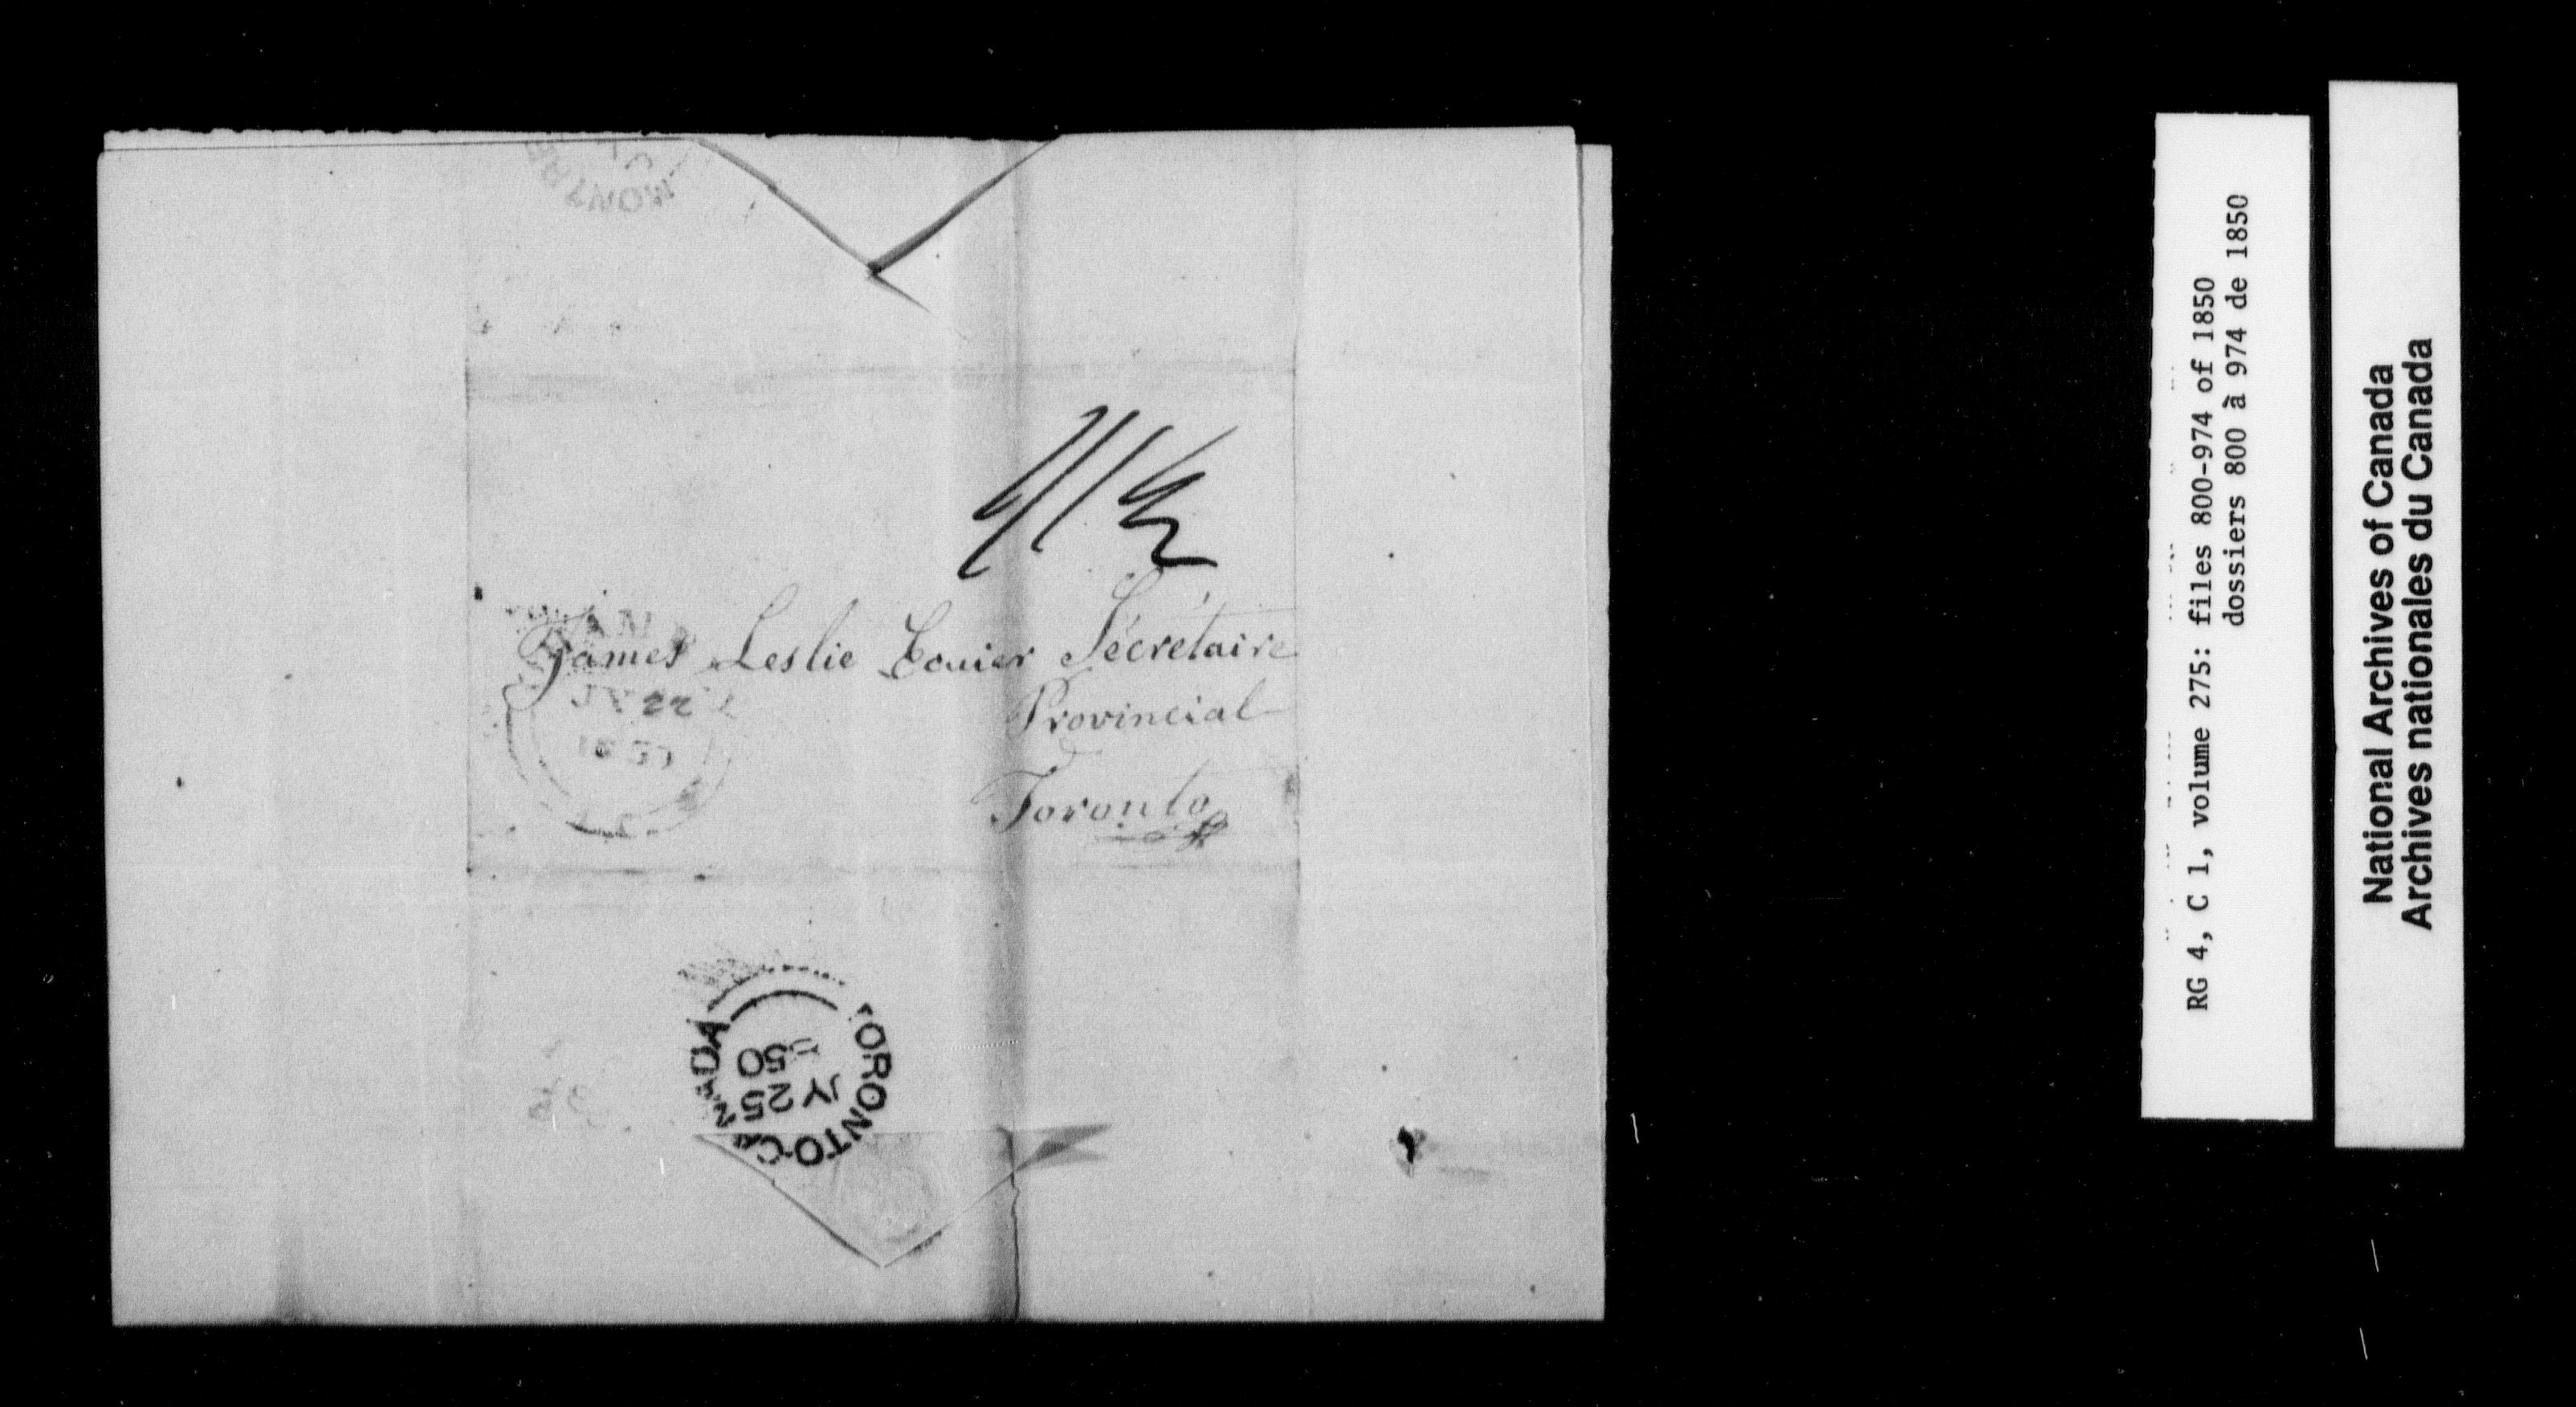 MONTRE
1/1½
James Leslie Ecuier Sécrétaire
Provincial
Toronto
JY 22
1850
TORONTO CANADA
JY 25
50
RG 4, C 1, volume 275: files 800-974 of 1850
dossiers 800 à 974 de 1850
National Archives of Canada
Archives nationales du Canada